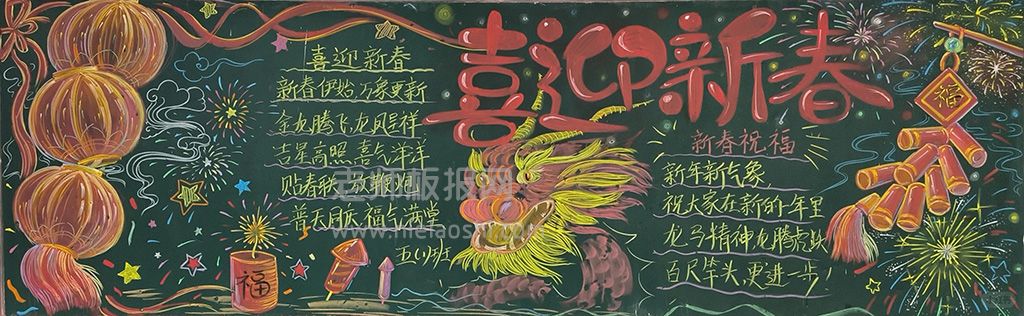 喜迎新春
喜迎新春
新春伊始 万象更新
金龙腾飞 龙凤呈祥
吉星高照 喜气洋洋
贴春联 放鞭炮
普天同庆 福气满堂
五(1)班
新春祝福
新年新气象
祝大家在新的一年里
龙马精神 龙腾虎跃
百尺竿头,更进一步!
福
福
老师板报网